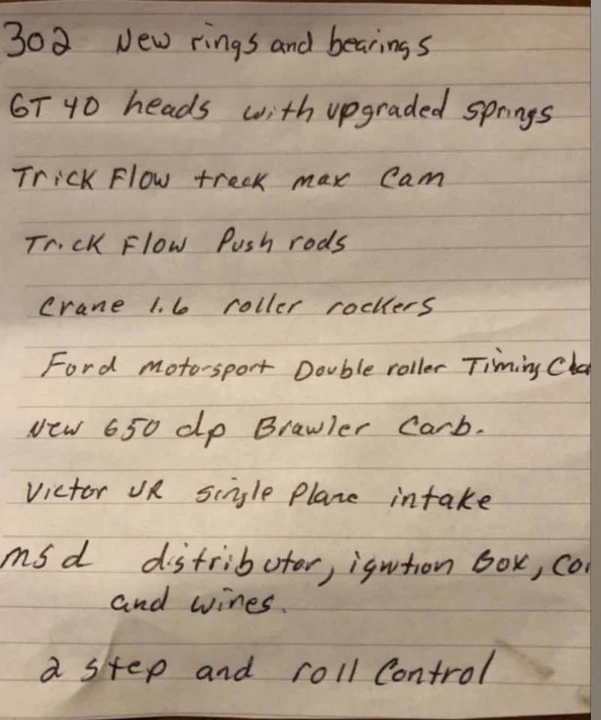 302 New rings and bearings
GT 40 heads with upgraded springs
Trick Flow track max Cam
Trick Flow Push rods
Crane 1.6 roller rockers
Ford Motorsport Double roller Timing Cha
New 650 dp Brawler Carb.
Victor JR single Plane intake
msd distributor, ignition Box, Co
and wires.
2 step and roll Control